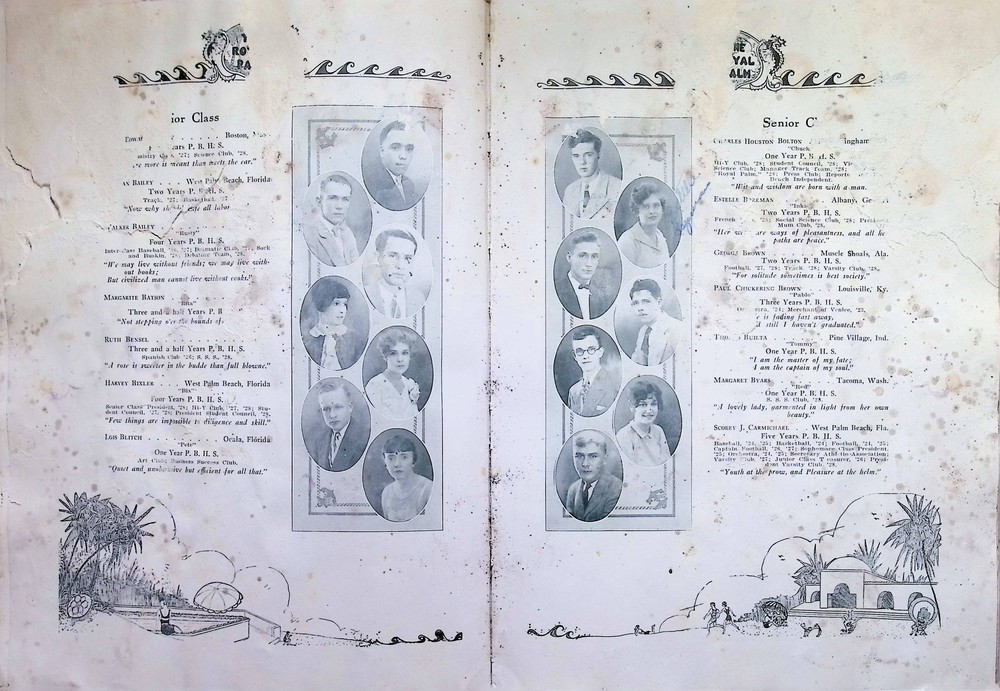 RO
PA
ior Class
Boston,
ears P. B. H. S.
'27; Science Club, '28.
more is meant than meets the ear."
AN BAILEY . . West Palm Beach, Florida
Two Years P. B. H. S.
Track, '27; Basketball, '27
"Now why all labor
WALKER BAILEY
"Rusty"
Four Years P. B. H. S.
Inter-Class Baseball, '27; Dramatic Club, Sock
and Buskin, '28; Debating Team, '28.
"We may live without friends; we may live with-
out books;
But civilized man cannot live without cooks."
MARGARITE BATSON . . . .
Three and a half Years P. B
"Not stepping o'er the bounds of
RUTH BENSEL . . . .
Three and a half Years P. B. H. S.
Spanish Club '26; S. S. S., '28.
"A rose is sweeter in the budde than full blowne."
HARVEY BIXLER . . West Palm Beach, Florida
"Bix"
Four Years P. B. H. S.
Senior Class President, '28; Hi-Y Club, '27, '28; Stu-
dent Council, '27, '28; President Student Council, '28.
"Few things are impossible to diligence and skill."
LOIS BLITCH . . . . Ocala, Florida
"Pete"
One Year P. B. H. S.
Art Club; Business Success Club.
"Quiet and but efficient for all that."
HE
YAL
ALM
Senior C
CHARLES HOUSTON BOLTON ingham
"Chuck"
One Year P. B. H. S.
Hi-Y Club, '28; Student Council, '28; Vice
Science Club; Manager Track Team, '28;
"Royal Palm," '28; Press Club; Reporter
Beach Independent.
"Wit and wisdom are born with a man.
ESTELLE BOZEMAN . . Albany, Ge
Two Years P. B. H. S.
French '28; Social Science Club, '28;
Mum Club, '28.
"Her ways are ways of pleasantness, and all her
paths are peace."
GEORGE BROWN . . . Muscle Shoals, Ala.
Two Years P. B. H. S.
Football, '27, '28; Track, '28; Varsity Club, '28.
"For solitude sometimes is best society."
PAUL CHICKERING BROWN . Louisville, Ky.
"Pablo"
Three Years P. B. H. S.
'24; Merchant of Venice, '25.
e is fading fast away,
d still I haven't graduated."
BURTA . . Pine Village, Ind.
"Tommy"
One Year P. B. H. S.
"I am the master of my fate;
I am the captain of my soul."
MARGARET BYARS . . . Tacoma, Wash.
"Red"
One Year P. B. H. S.
S. S. S. Club, '28.
"A lovely lady, garmented in light from her own
beauty."
SCOREY J. CARMICHAEL . . West Palm Beach, Fla.
Five Years P. B. H. S.
Baseball, '24, '25; Basketball, '24; Football, '24, '25;
Captain Football, '26, '27; Sophomore Class President,
'25; Orchestra, '24, '25; Secretary Athletic Association;
Varsity Club, '27; Junior Class Treasurer, '26; Presi-
dent Varsity Club, '28.
"Youth at the prow, and Pleasure at the helm."